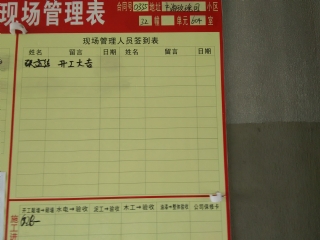 现场管理表
合同号 0335 地址 小区
32 幢 单元 604 室
现场管理人员签到表
姓名 留言 日期 姓名 留言 日期
开工大吉
开工现场→验收 水电→验收 泥工→验收 木工→验收 油漆→整体验收 公司保修卡
施工进